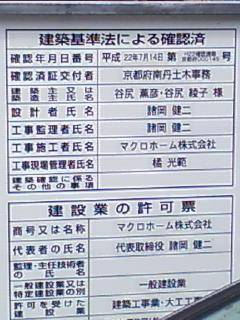 建築基準法による確認済
確認年月日番号 平成 22年7月14日 第 号
確認済証交付者 京都府南丹土木事務
建築主又は築造主氏名 谷尻 薫彦・谷尻 綾子 様
設計者氏名 諸岡 健二
工事監理者氏名 諸岡 健二
工事施工者氏名 マクロホーム株式会社
工事現場管理者氏名 橘 光範
建築確認に係る
その他の事項
建設業の許可票
商号又は名称 マクロホーム株式会社
代表者の氏名 代表取締役 諸岡 健二
監理・主任技術者
の氏名
一般建設業又は
特定建設業の別 一般建設業
許可を受けた
建設業 建築工事業・大工工事